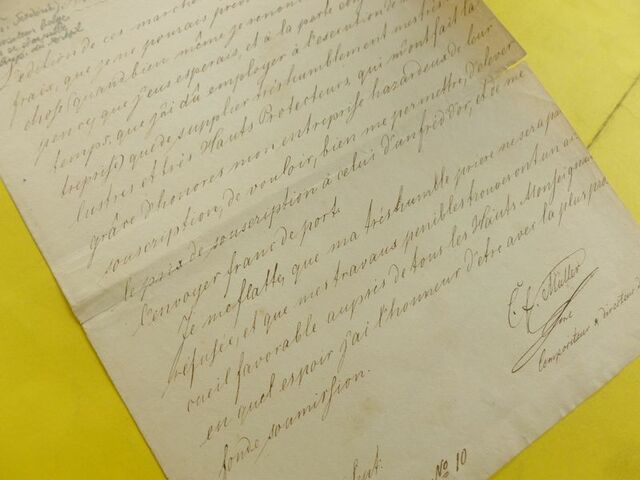 L'édition de ces marcho
frais, que je ne pouvais prem
chose (quand bien même je renon
pon ce que j'eus esperais, et à la perte du
temps, que j'ai dû employer à l'exécution de m
treprise) que de supplier très humblement mes tres
lustres et très Hauts Protecteurs, qui m'ont fait la
grâce d'honorer mon entreprise hazardeuse de leur
souscription, de vouloir bien me permettre, d'elever
le prix de souscription à celui d'un fréd'or, et de me
l'envoyer franc de port.
Je me flatte, que ma très humble prière ne sera pa
refusée, et que mes travaus penibles trouveront un ac
cueil favorable auprès de tous les Hauts Monseigneu
en quel espoir j'ai l'honneur d'etre avec la plus pro
fonde soumission.
C. F. Müller
Compositeur & directeur d
No 10